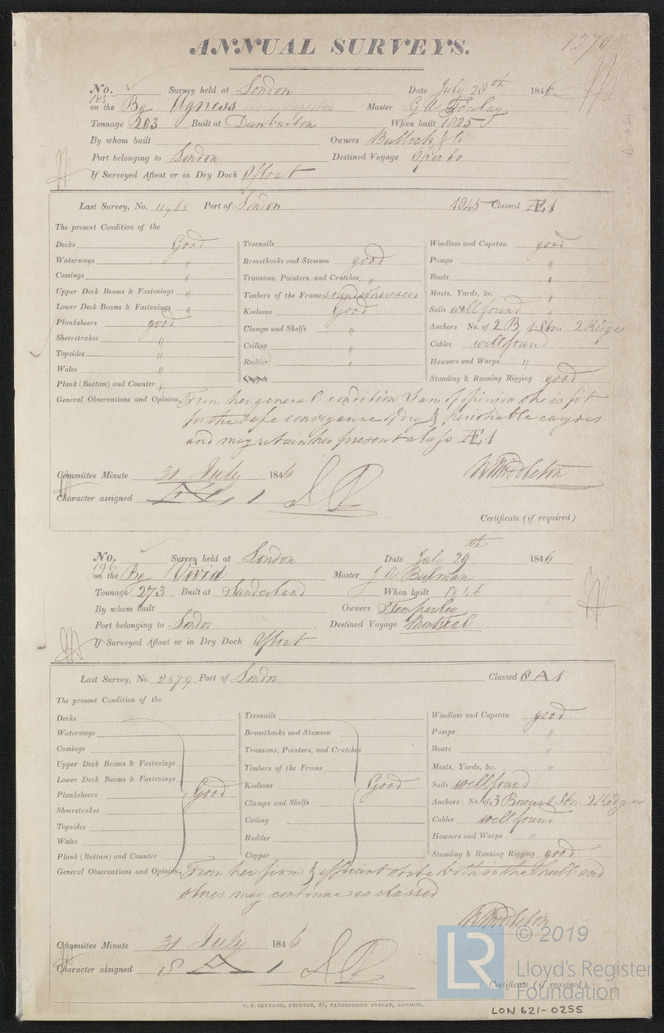 ANNUAL SURVEYS.
1270
No. 195 Survey held at London Date July 28th 1846
on the Bg Agness Master
Tonnage 203 Built at Dumbarton When built 1825
By whom built Owners Bullock & Co
Port belonging to London Destined Voyage Oporto
If Surveyed Afloat or in Dry Dock Afloat
Last Survey, No. Port of London 1845 Classed Æ1
The present Condition of the
Decks Good Treenails Windlass and Capstan good
Waterways " Breasthooks and Stemson good Pumps "
Comings " Transoms, Pointers, and Crutches " Boats "
Upper Deck Beams & Fastenings " Timbers of the Frame Masts, Yards, &c. "
Lower Deck Beams & Fastenings " Keelsons Good Sails well found
Planksheers good Clamps and Shelfs " Anchors No. of 2 B 1 Stm 2 Kedges
Sheerstrakes " Ceiling " Cables well found
Topsides " Rudder " Hawsers and Warps "
Wales " Standing & Running Rigging good
Plank (Bottom) and Counter "
General Observations and Opinion, From her general condition I am of opinion she is fit
for the safe conveyance of dry & perishable cargoes
and may retain her present class Æ1
Committee Minute 31 July 1846
Character assigned Æ 1
Certificate (if required)
No. 196 Survey held at London Date July 29th 1846
on the Bg Vivid Master
Tonnage 273 Built at Sunderland When built 1846
By whom built Owners Temperley
Port belonging to London Destined Voyage Montreal
If Surveyed Afloat or in Dry Dock Afloat
Last Survey, No. 2879 Port of London Classed 8 A 1
The present Condition of the
Decks Treenails Windlass and Capstan good
Waterways Breasthooks and Stemson Pumps "
Comings Transoms, Pointers, and Crutches Boats "
Upper Deck Beams & Fastenings Timbers of the Frame Masts, Yards, &c. "
Lower Deck Beams & Fastenings Keelsons Good Sails well found
Planksheers Good Clamps and Shelfs Anchors No. of 3 Bowers 1 Stm 2 Kedges
Sheerstrakes Ceiling Cables well found
Topsides Rudder Hawsers and Warps "
Wales Copper Standing & Running Rigging good
Plank (Bottom) and Counter
General Observations and Opinion, From her firm & efficient state both in the Hull and
Stores may continue as classed
Committee Minute 31 July 1846
Character assigned 8 A 1
Certificate (if required)
LR © 2019
Lloyd's Register
Foundation
LON 621-0255